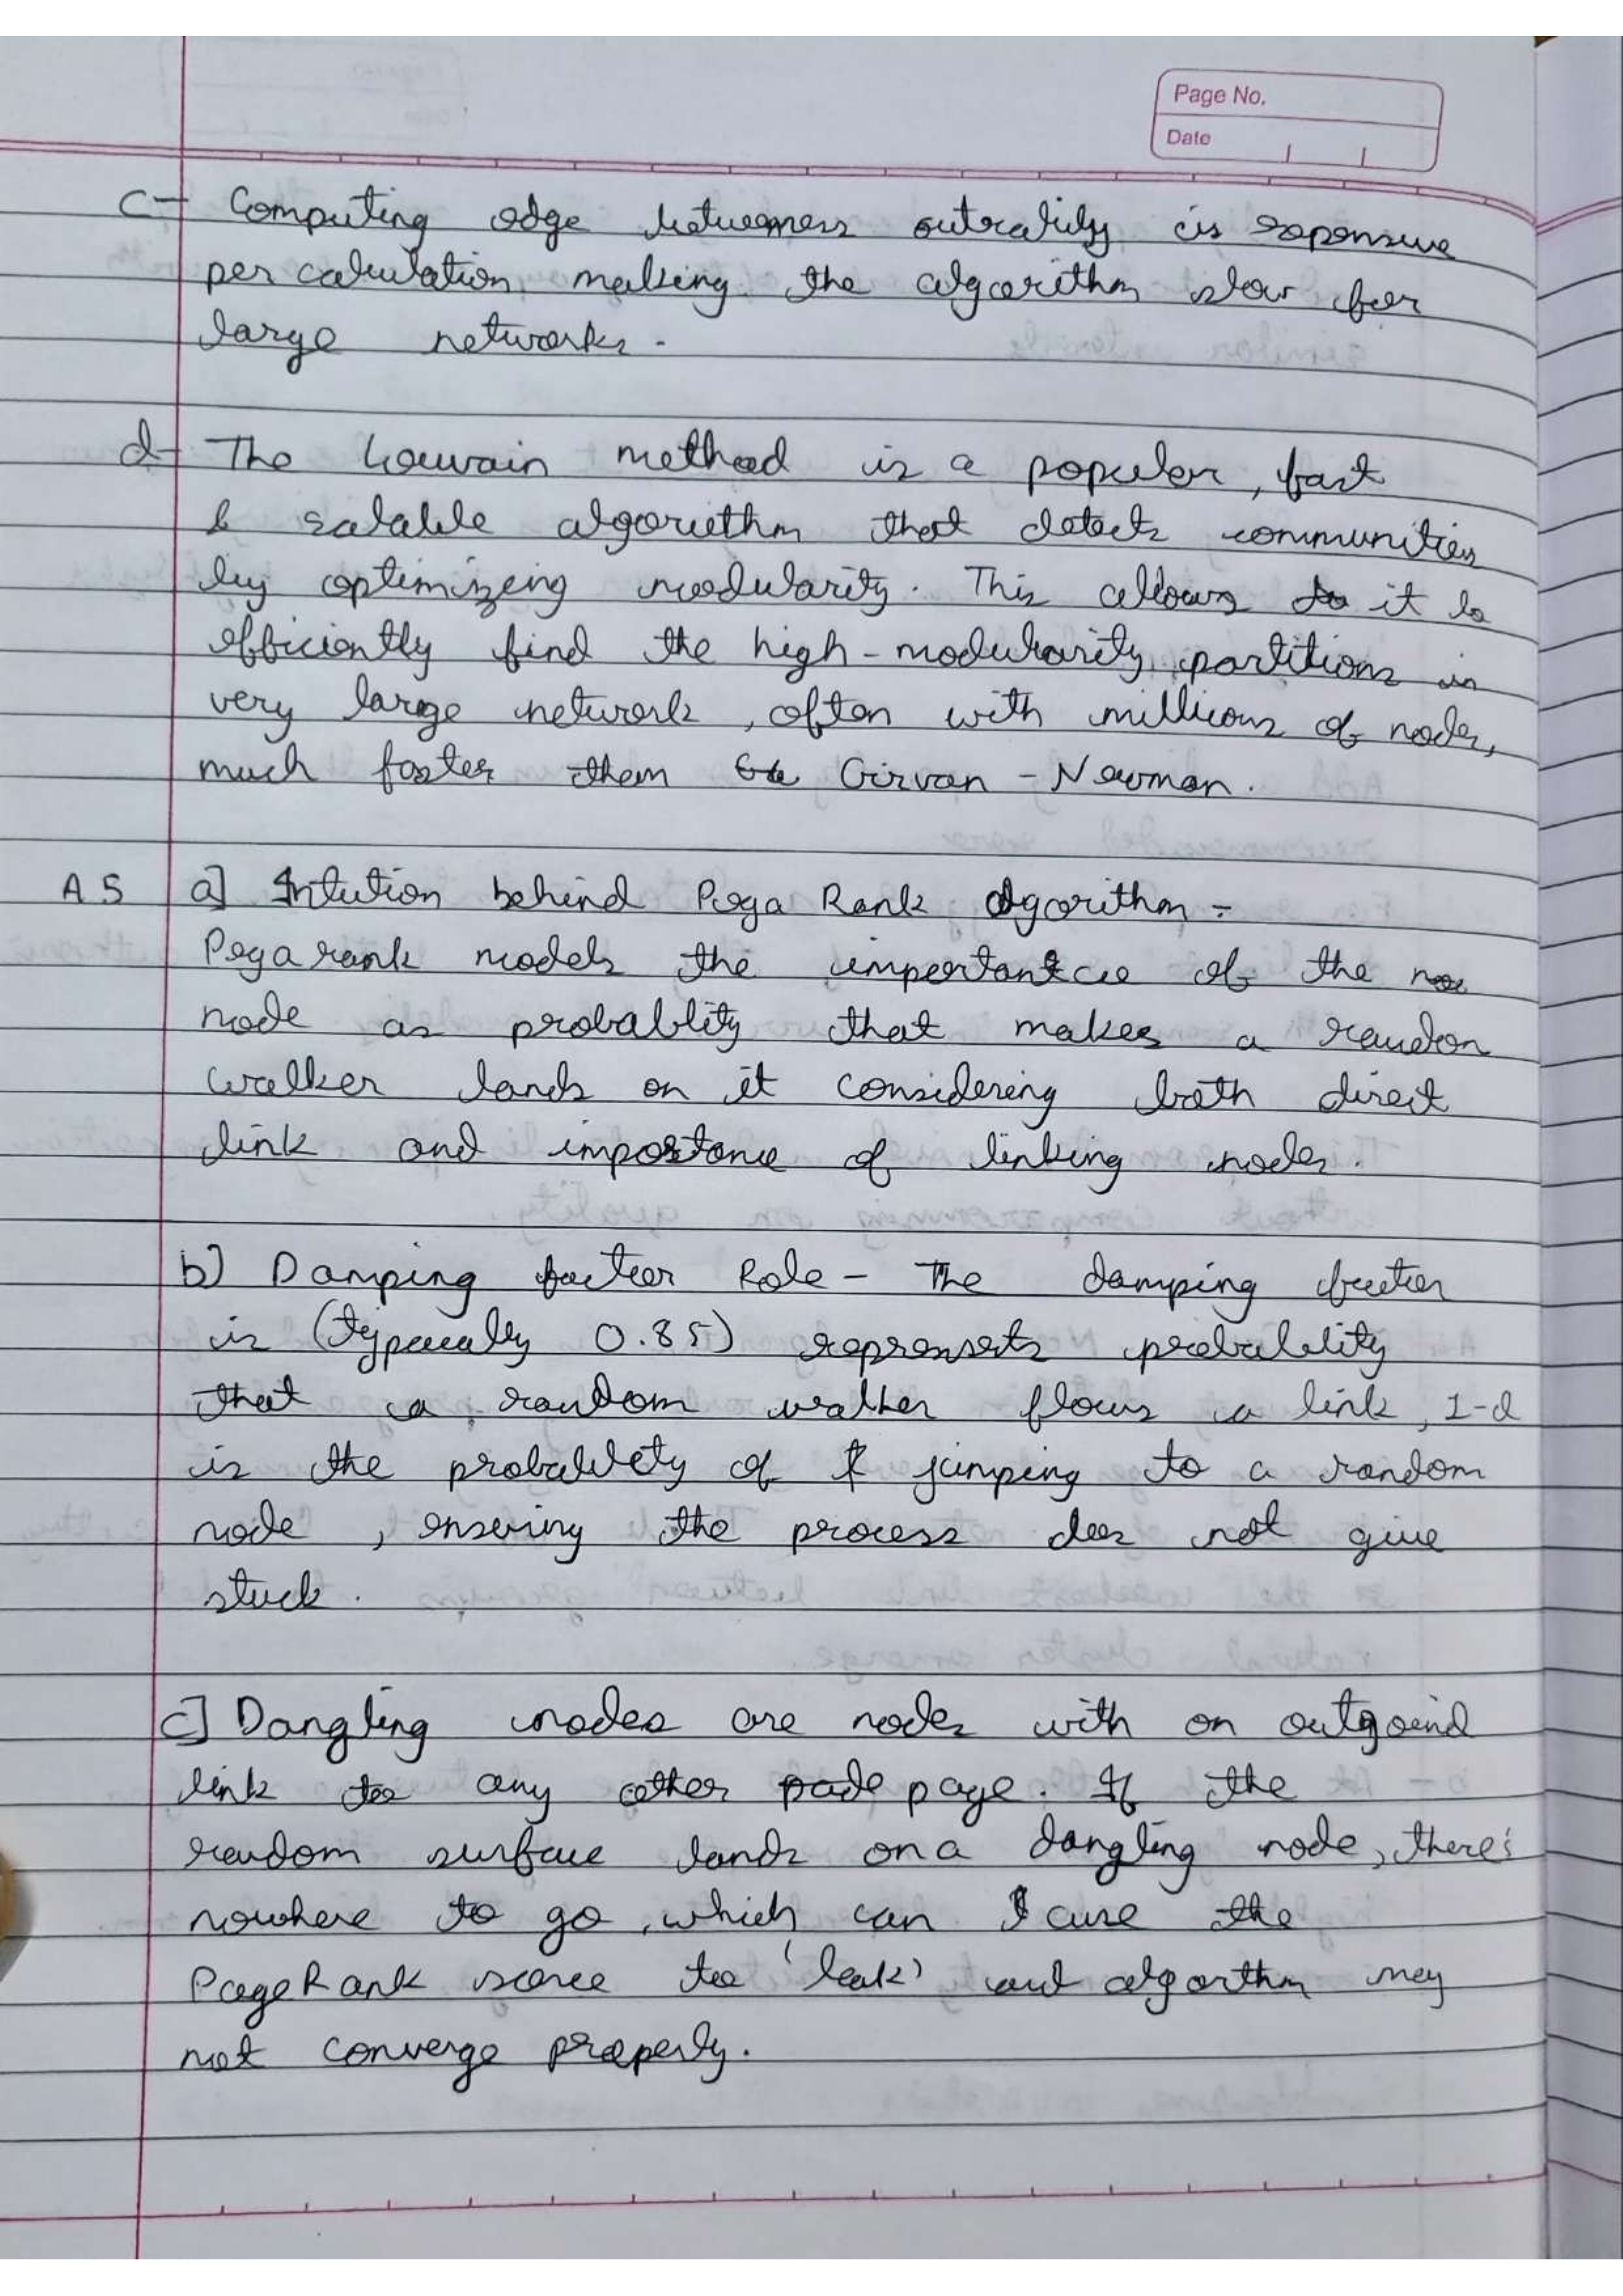 Page No.
Date
c- Computing edge betweeness centrality is expensive
per calculation, making the algorithm slow for
large networks.
d- The Louvain method is a popular, fast
& scalable algorithm that detects communities
by optimizeing modularity. This allows to it to
efficiently find the high-modularity partitions in
very large network, often with millions of nodes,
much faster then Girvan - Newman.
A5 a] Intution behind Page Rank algorithm -
Page rank models the importantce of the no
node as probablity that makes a random
walker lands on it considering both direct
link and importance of linking nodes.
b) Damping factor Role - The damping factor
is (typically 0.85) represents probability
that a random walker flows a link, 1-d
is the probability of jumping to a random
node, ensering the process does not give
stuck.
c] Dangling nodes are nodes with on outgoind
link to any other pade page. If the
random surface lands on a dangling node, there's
nowhere to go, which can cuse the
PageRank score to 'leak' and algorthm may
not converge properly.